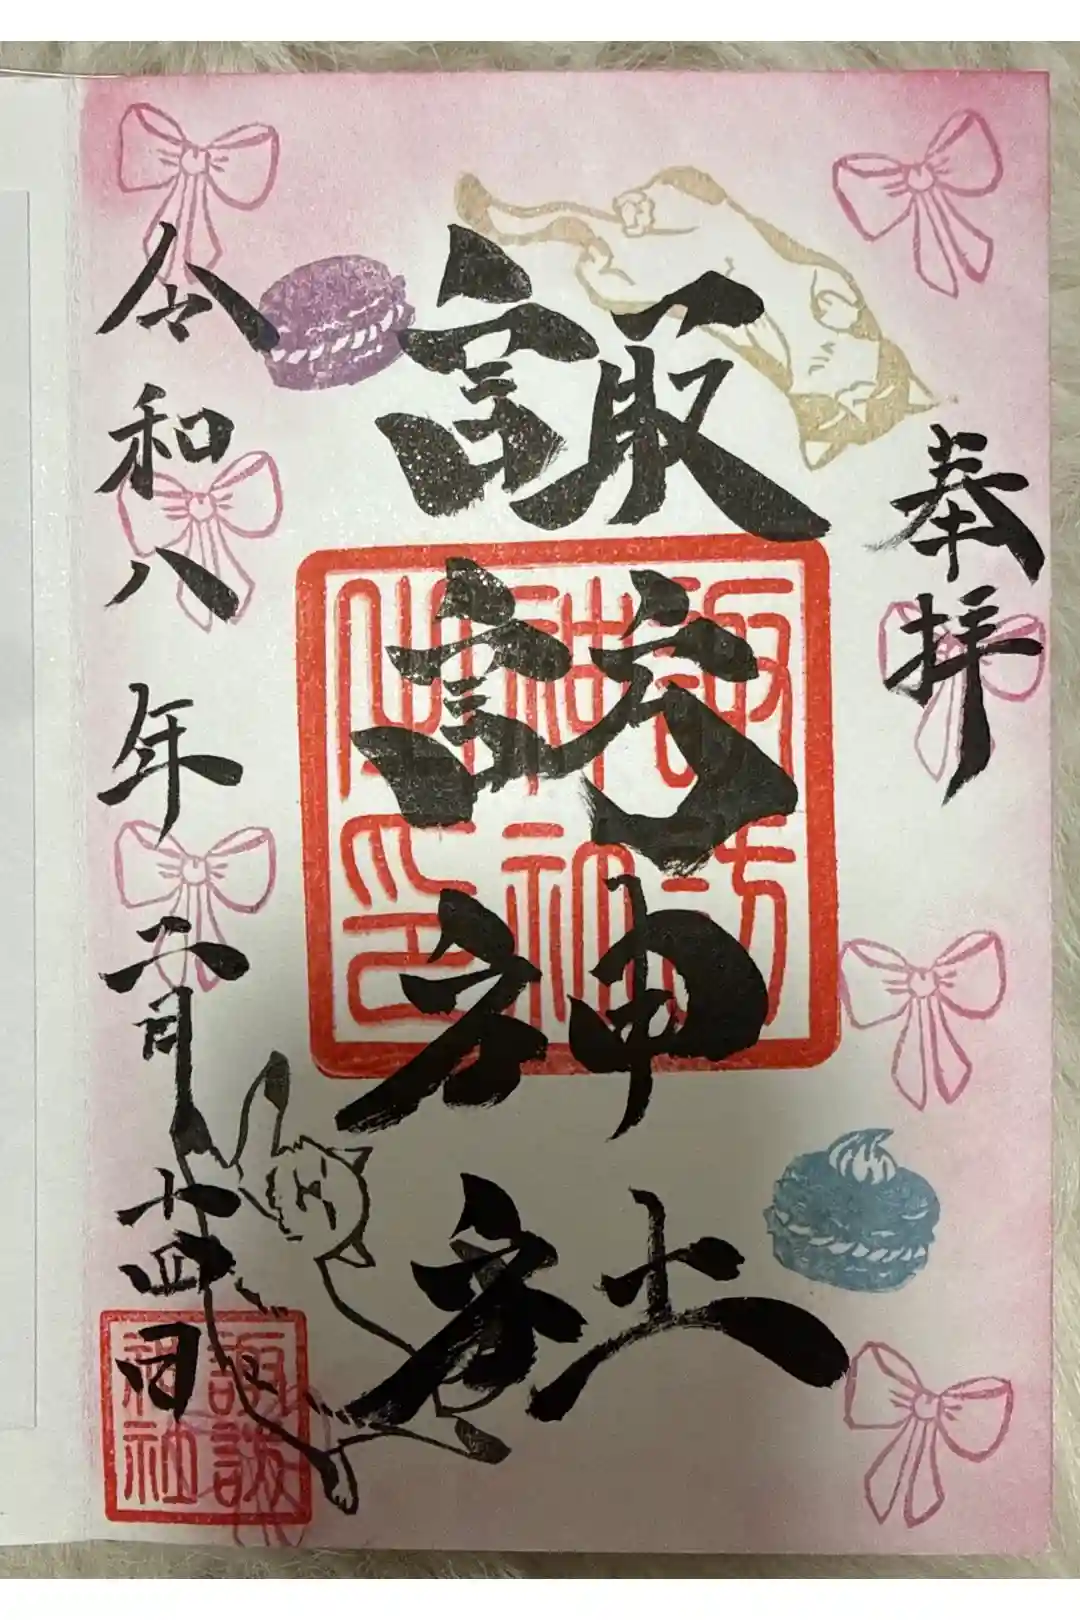 奉拝
諏訪神社
諏訪
神社
之印
令和八年二月十四日
諏訪
神社